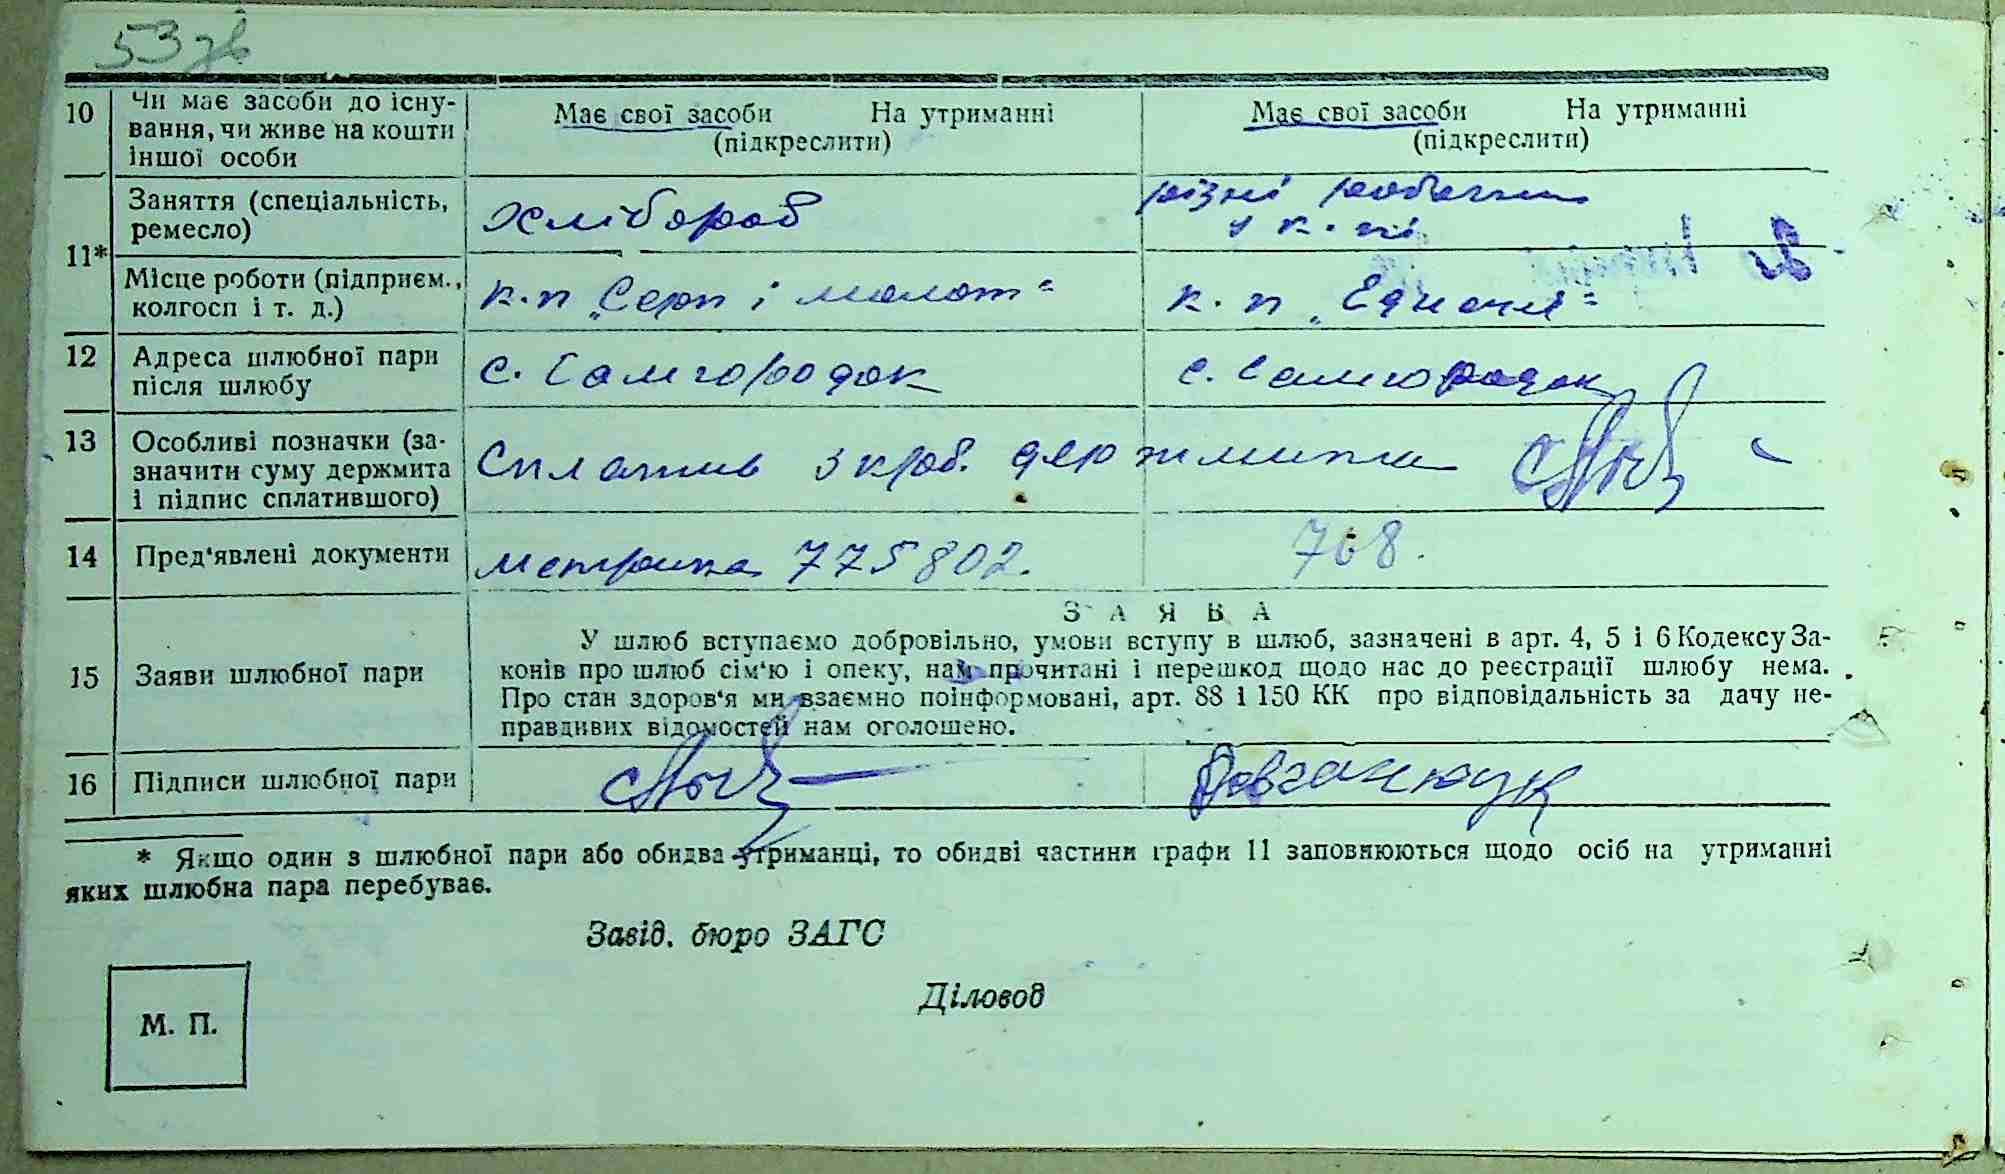 53 зв
10 Чи має засоби до існу-
вання, чи живе на кошти
іншої особи
Має свої засоби На утриманні
(підкреслити)
Має свої засоби На утриманні
(підкреслити)
11*
Заняття (спеціальність,
ремесло)
Хлібороб
різні
у к.п.
Місце роботи (підприєм.,
колгосп і т. д.)
к.п „Серп і молот"
к.п „Єдност"
12 Адреса шлюбної пари
після шлюбу
с. Самгородок
с. Самгородок
13 Особливі позначки (за-
значити суму держмита
і підпис сплатившого)
Сплатив 3 крб. держмита
14 Пред'явлені документи
метрика 775802.
768.
15 Заяви шлюбної пари
ЗАЯВА
У шлюб вступаємо добровільно, умови вступу в шлюб, зазначені в арт. 4, 5 і 6 Кодексу За-
конів про шлюб сім'ю і опеку, нам прочитані і перешкод щодо нас до реєстрації шлюбу нема.
Про стан здоров'я ми взаємно поінформовані, арт. 88 і 150 КК про відповідальність за дачу не-
правдивих відомостей нам оголошено.
16 Підписи шлюбної пари
Довганюк
* Якщо один з шлюбної пари або обидва утриманці, то обидві частини графи 11 заповнюються щодо осіб на утриманні
яких шлюбна пара перебуває.
Завід. бюро ЗАГС
Діловод
М. П.